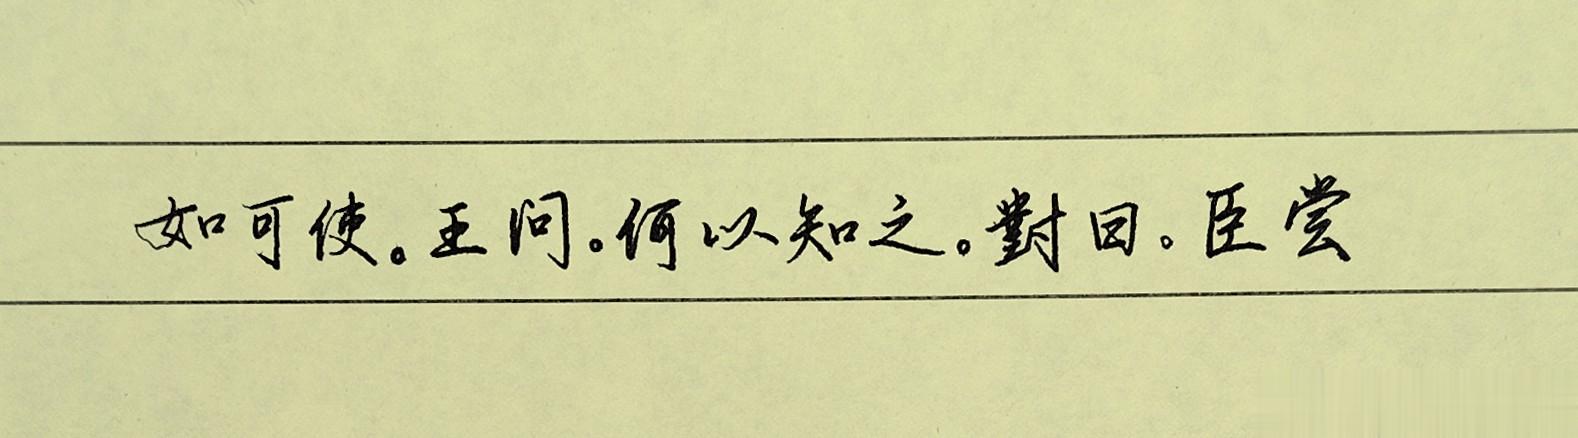 如可使。王问。何以知之。對曰。臣尝